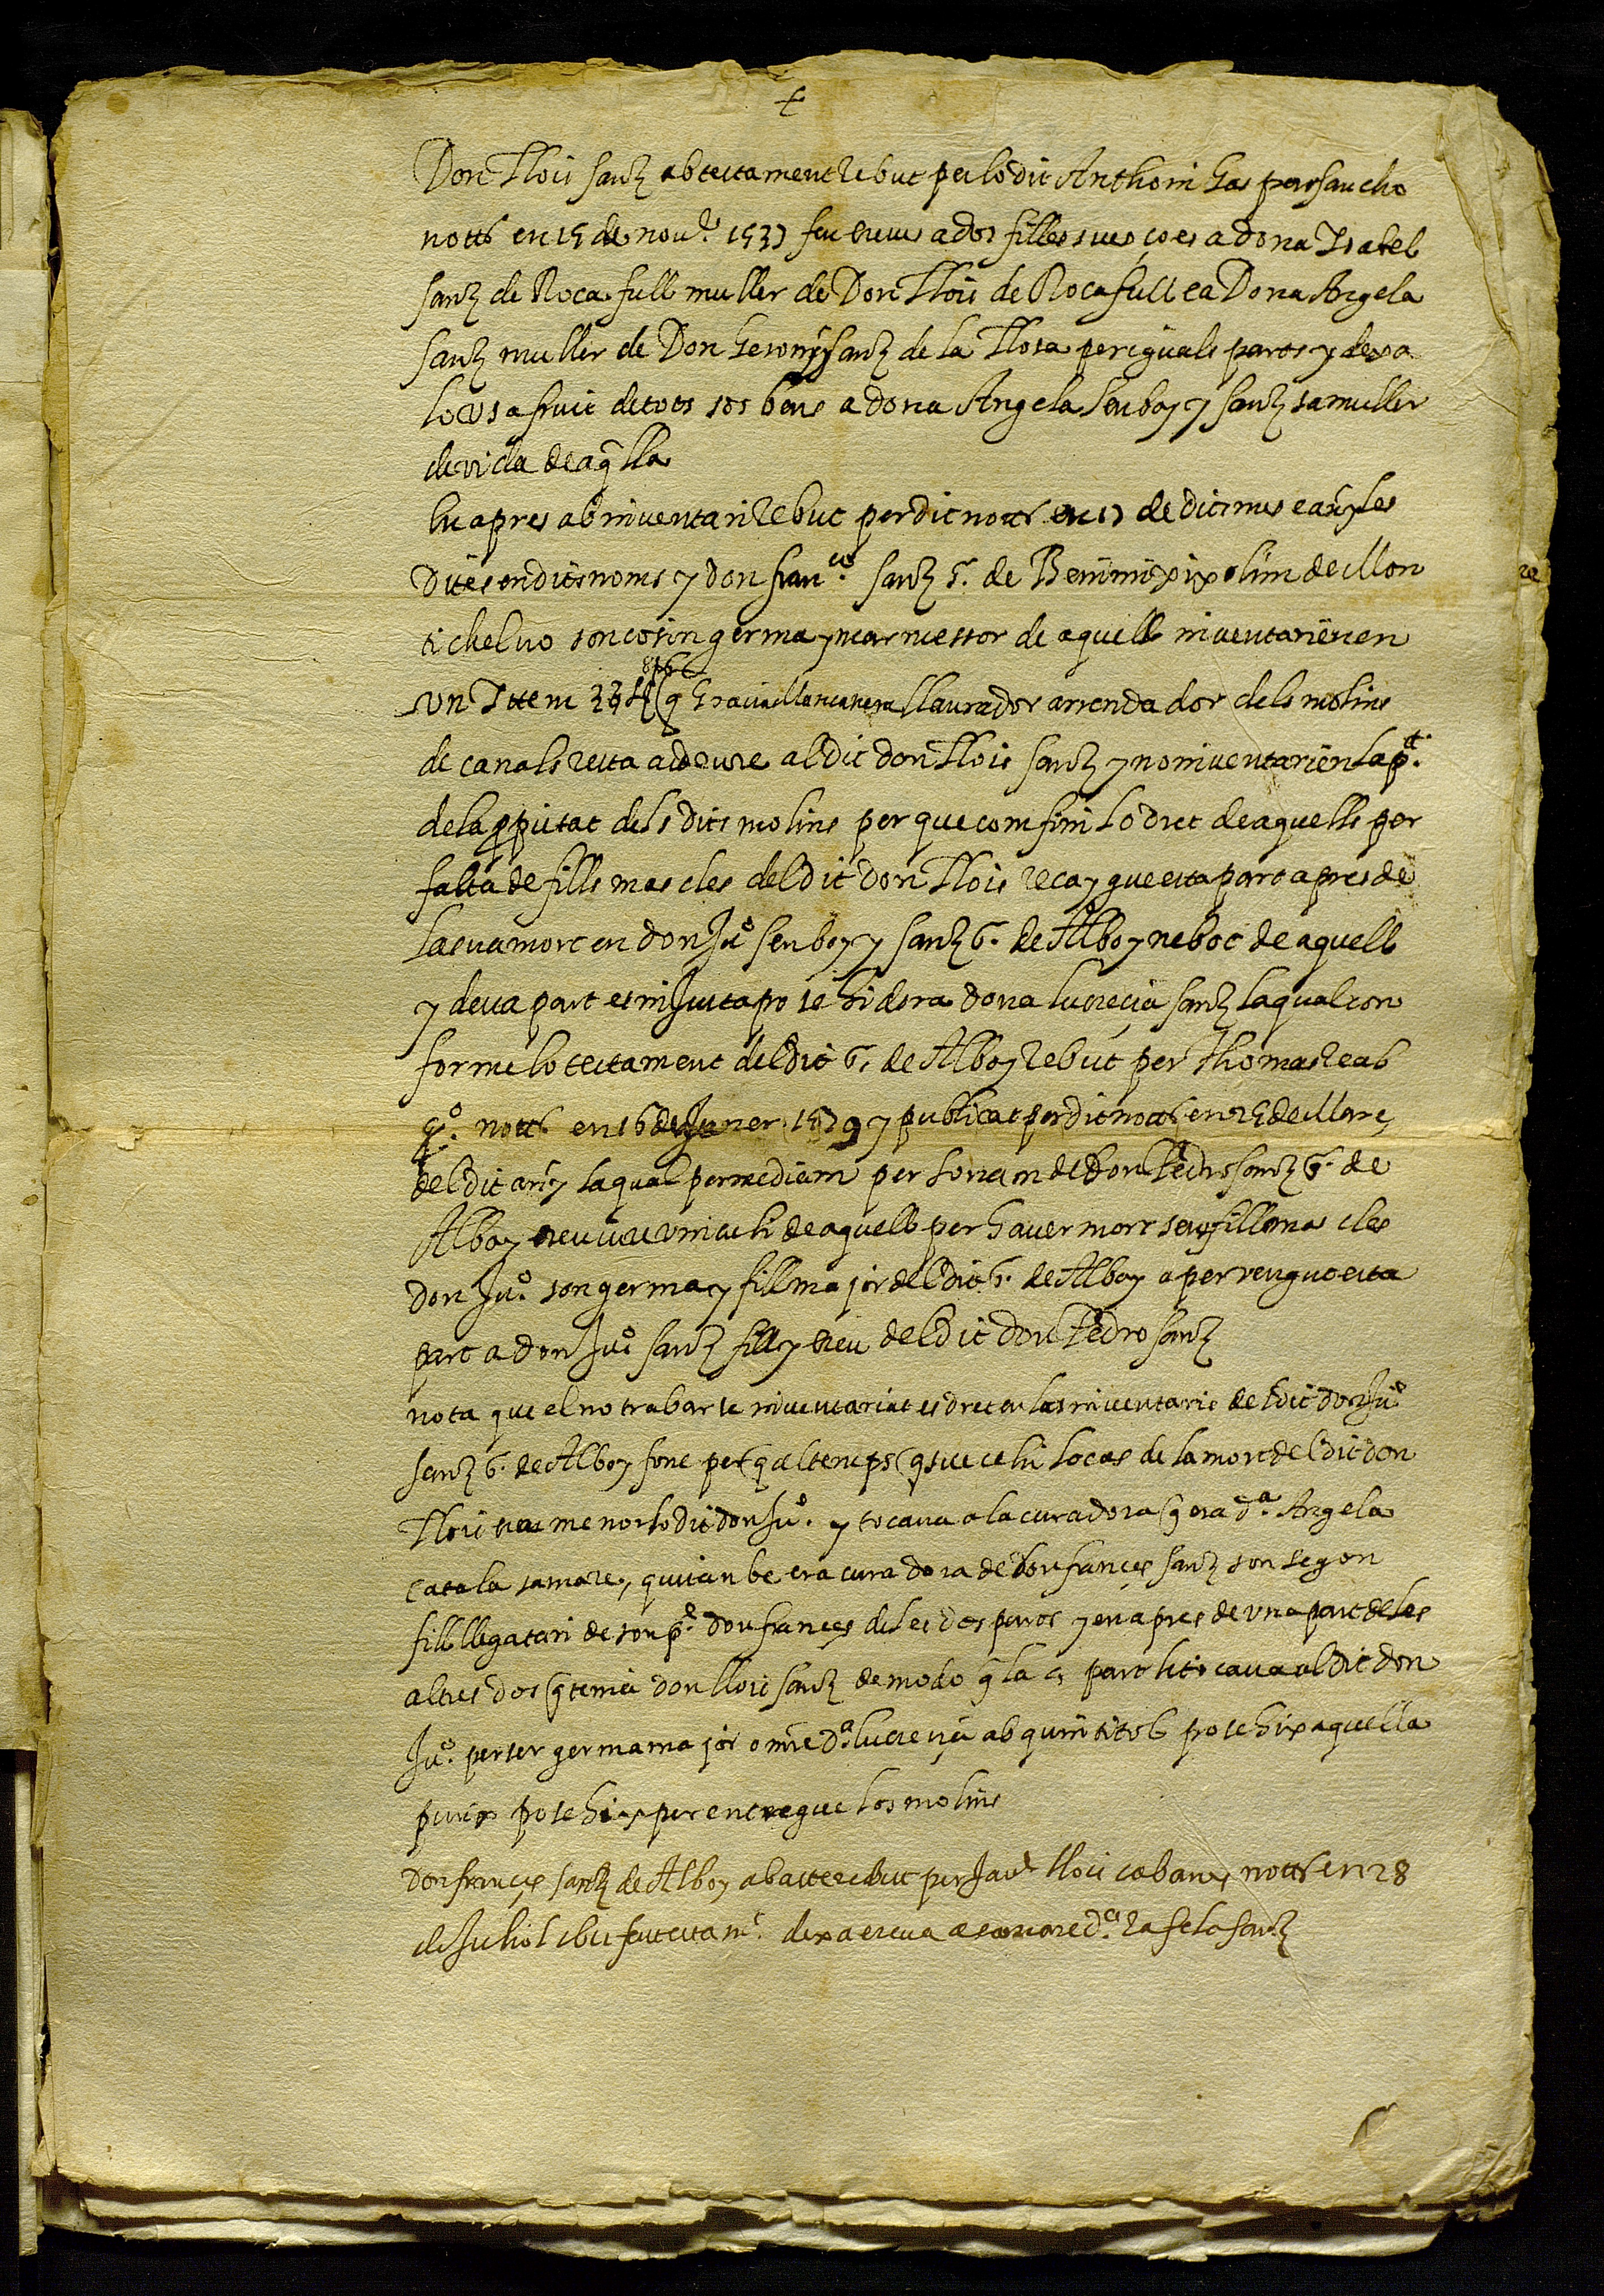 Don Llois sanz ab testament rebut per lo dit Anthoni Gaspar sancho
nott̃ en 15 de nou.e 153) feu ereues a dos filles sues ço es a dona Isabel
sanz de Rocafull muller de Don Llois de Rocafull e a Dona Angela
sanz muller de Don Geronỹ sanz de la Llosa per iguals parts y dexa
lo usafruit de tots sos bens a dona Angela Senboy y sanz sa muller
de vida de aq̃lla
En apres ab inventari rebut per dit nott̃ en 1) de dit mes e añy les
dites en dits noms y don fran.co sanz s.r de Benimexix olim de Mon
tichelvo son cosin germa y marmessor de aquell inventarièren
un Ittem llaurador arrendador dels molins
de canals resta a deure al dit don Llois sanz y no inventarièn la p.t
de la p̱pietat dels dits molins per que com fini lo dret de aquells per
falta de fills mascles del dit don Llois recaygue esta part apres de
la sua mort en don Ju.o Senboy y sanz s.r de Alboy nebot de aquell
y desta part es injusta possehidora dona lucrecia sanz la qual con
forme lo testament del dit s.r de Alboy rebut per Thomas reab
g.o nott̃ en 16 de Janer 1579 y publicat per dit nott̃ en 25 de Març
del dit añy la qual per mediam persona del don Pedro sanz s.r de
Alboy ereu y vinculi de aquell per haver mort sens fills mascles
don Ju.o son germa y fill major del dit s.r de Alboy a pervengut esta
part a don Ju.o sanz fill y ereu del dit don Pedro sanz
nota que el no trobarse inventariat es dret en los inventaris del dit don Ju.o
sanz s.r de Alboy fonc per q̃ al temps q̃ suceehi lo cas de la mort del dit don
Llois era menor lo dit don Ju.o y tocaua a la curadora q̃ era d.a Angela
catala sa mare, qui tanbe era curadora de don frances sanz son segon
fill llegatari de son p.e don frances de les dos parts y en apres de una part de les
altres dos q̃ tenia don llois sanz de modo q̃ la part li tocaua al dit don
Ju.o per ser germa major o mre d.a lucrecia ab quin titol possehix aquella
puix possehix per entregue los molins
don frances sanz de Alboy ab acte rebut per Jau.e llois cabanes nott̃ en 28
de Juliol feu testam.t dexa ereua a sa mare d.a Rafela sanz